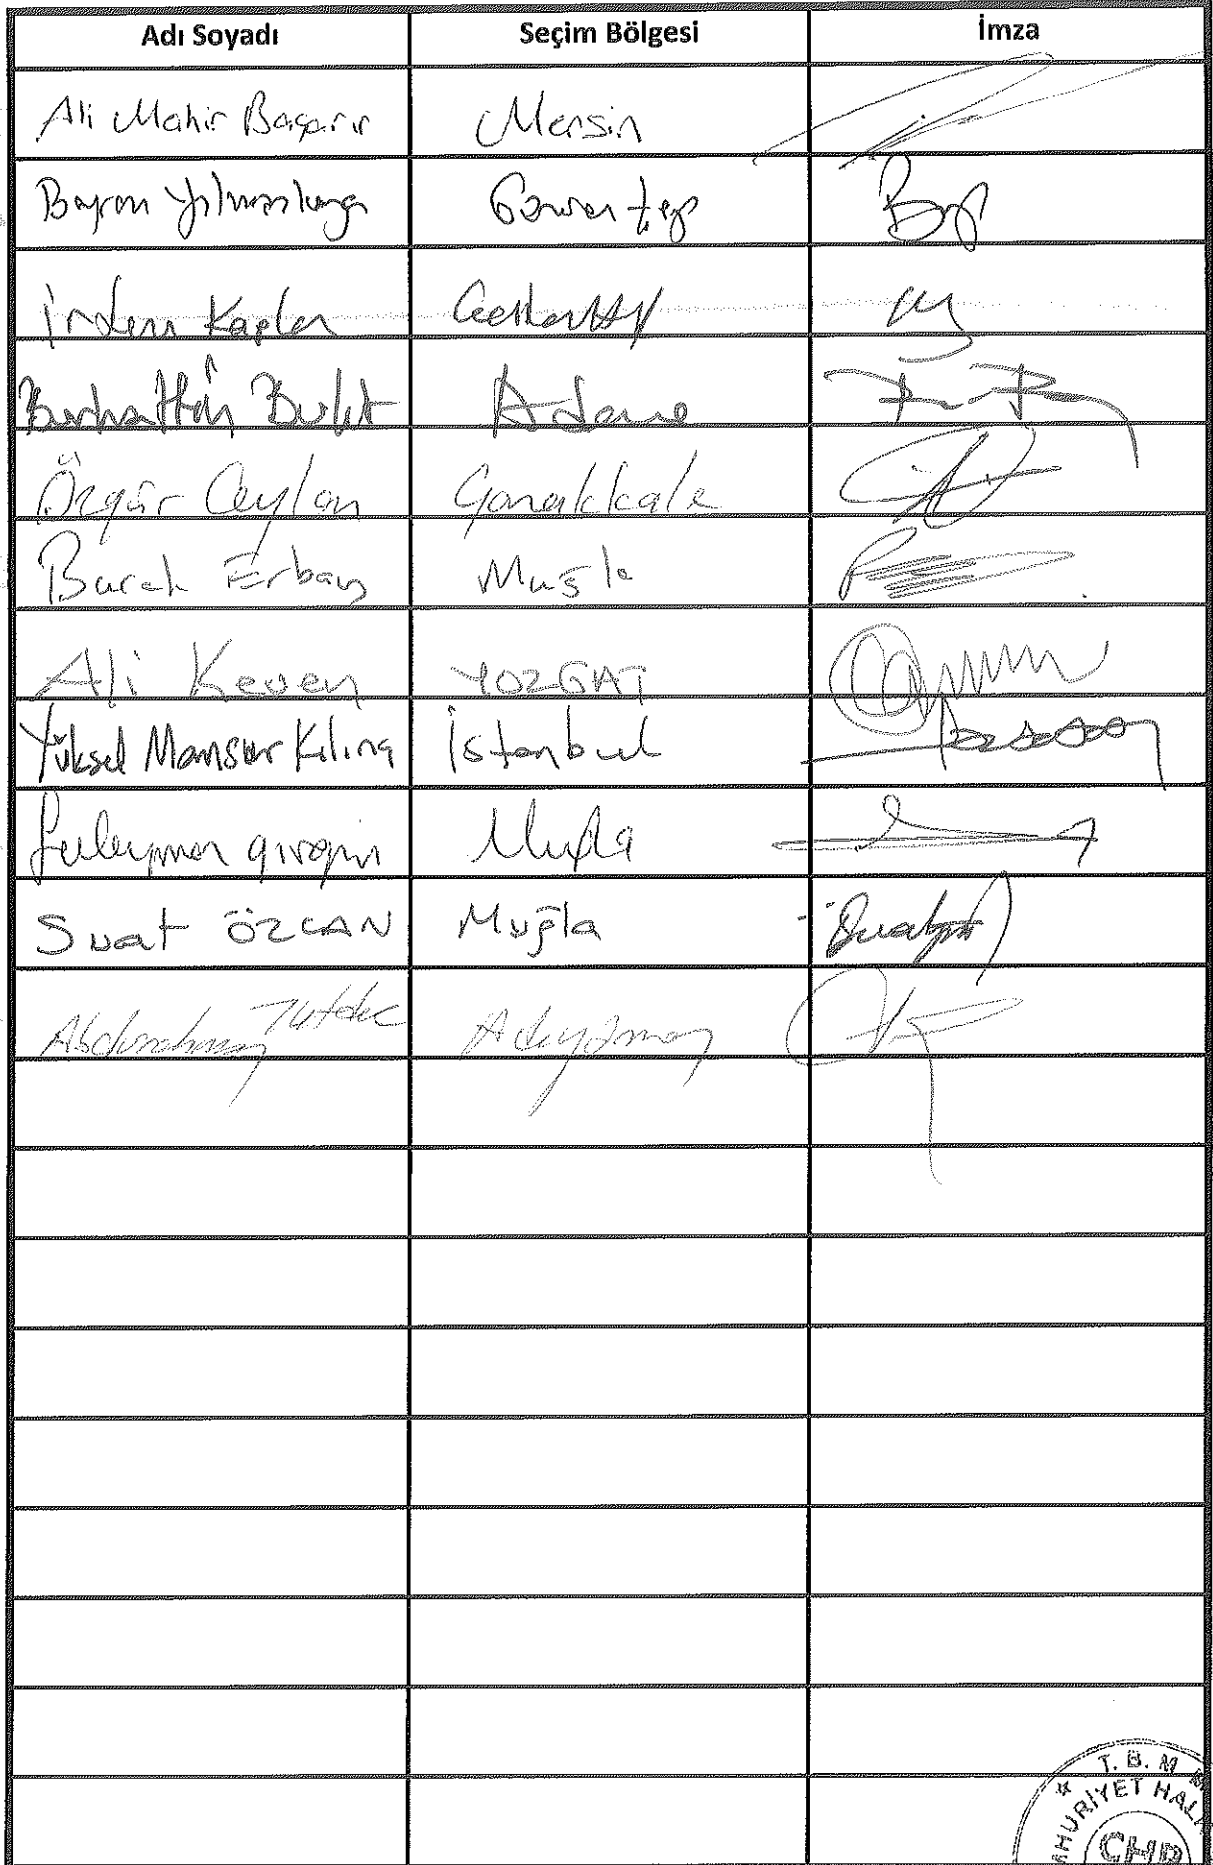 Adı Soyadı Seçim Bölgesi İmza
Ali Mahir Başarır Mersin
Bayram Yılmazkaya Gaziantep
İrfan Kaplan Gaziantep
Burhanettin Bulut Adana
Özgür Ceylan Çanakkale
Burak Erbay Muğla
Ali Keven YOZGAT
Yüksel Mansur Kılınç İstanbul
Süleyman Girgin Muğla
Suat ÖZCAN Muğla
Abdurrahman Tutdere Adıyaman
T. B. M
MHURİYET HALK
CHP